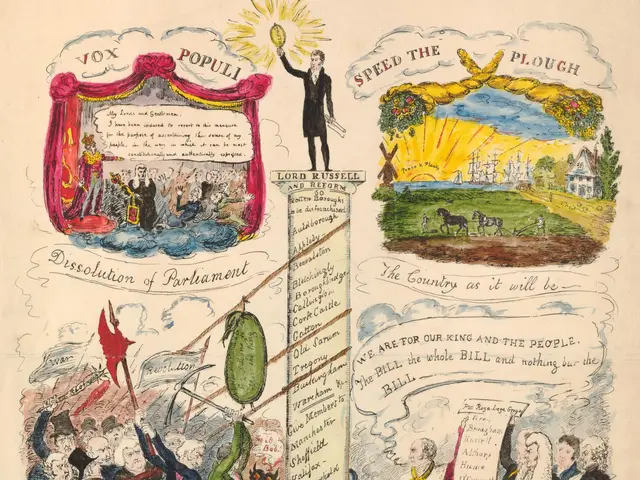 VOX POPULI
My Lords and Gentlemen.
I have been induced to resort to this measure
for the purpose of ascertaining the sense of my
people, in the way in which it can be most
constitutionally and authentically expressed.
Dissolution of Parliament
LORD RUSSELL
AND REFORM
60
Rotten Boroughs
to be disfranchised
Aldborough
Appleby
Bearalston
Bletchingly
Boroughbridge
Callington
Cork Castle
Gatton
Old Sarum
Tregony
Buckingham
Wareham &c
Give Members to
Manchester
Sheffield
Halifax
SPEED THE PLOUGH
The Country as it will be
WE ARE FOR OUR KING AND THE PEOPLE.
The BILL the whole BILL and nothing but the
BILL
War
Revolution
Brougham
Russell
Althorp